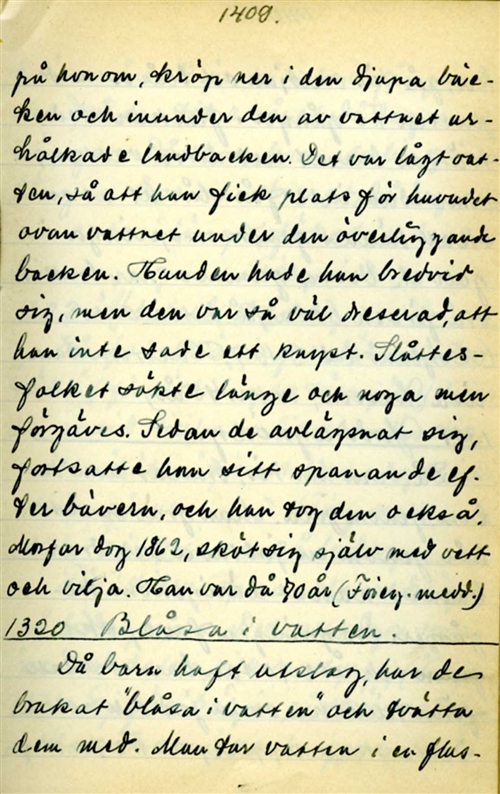 1409.
på honom, kröp ner i den djupa bäc-
ken och inunder den av vattnet ur-
hålkade landbacken. Det var lågt vat-
ten, så att han fick plats för huvudet
ovan vattnet under den överliggande
backen. Hunden hade han bredvid
sig, men den var så väl dreserad, att
han inte sade ett knyst. Slåttes-
folket sökte länge och noga men
förgäves. Sedan de avlägsnat sig,
fortsatte han sitt spanande ef-
ter bävern, och han tog den också.
Morfar dog 1862, sköt sig själv med vett
och vilja. Han var då 70 år (Föreg. medd.)
1320 Blåsa i vatten.
Då barn haft utslag, har de
brukat "blåsa i vatten" och tvätta
dem med. Man tar vatten i en flas-